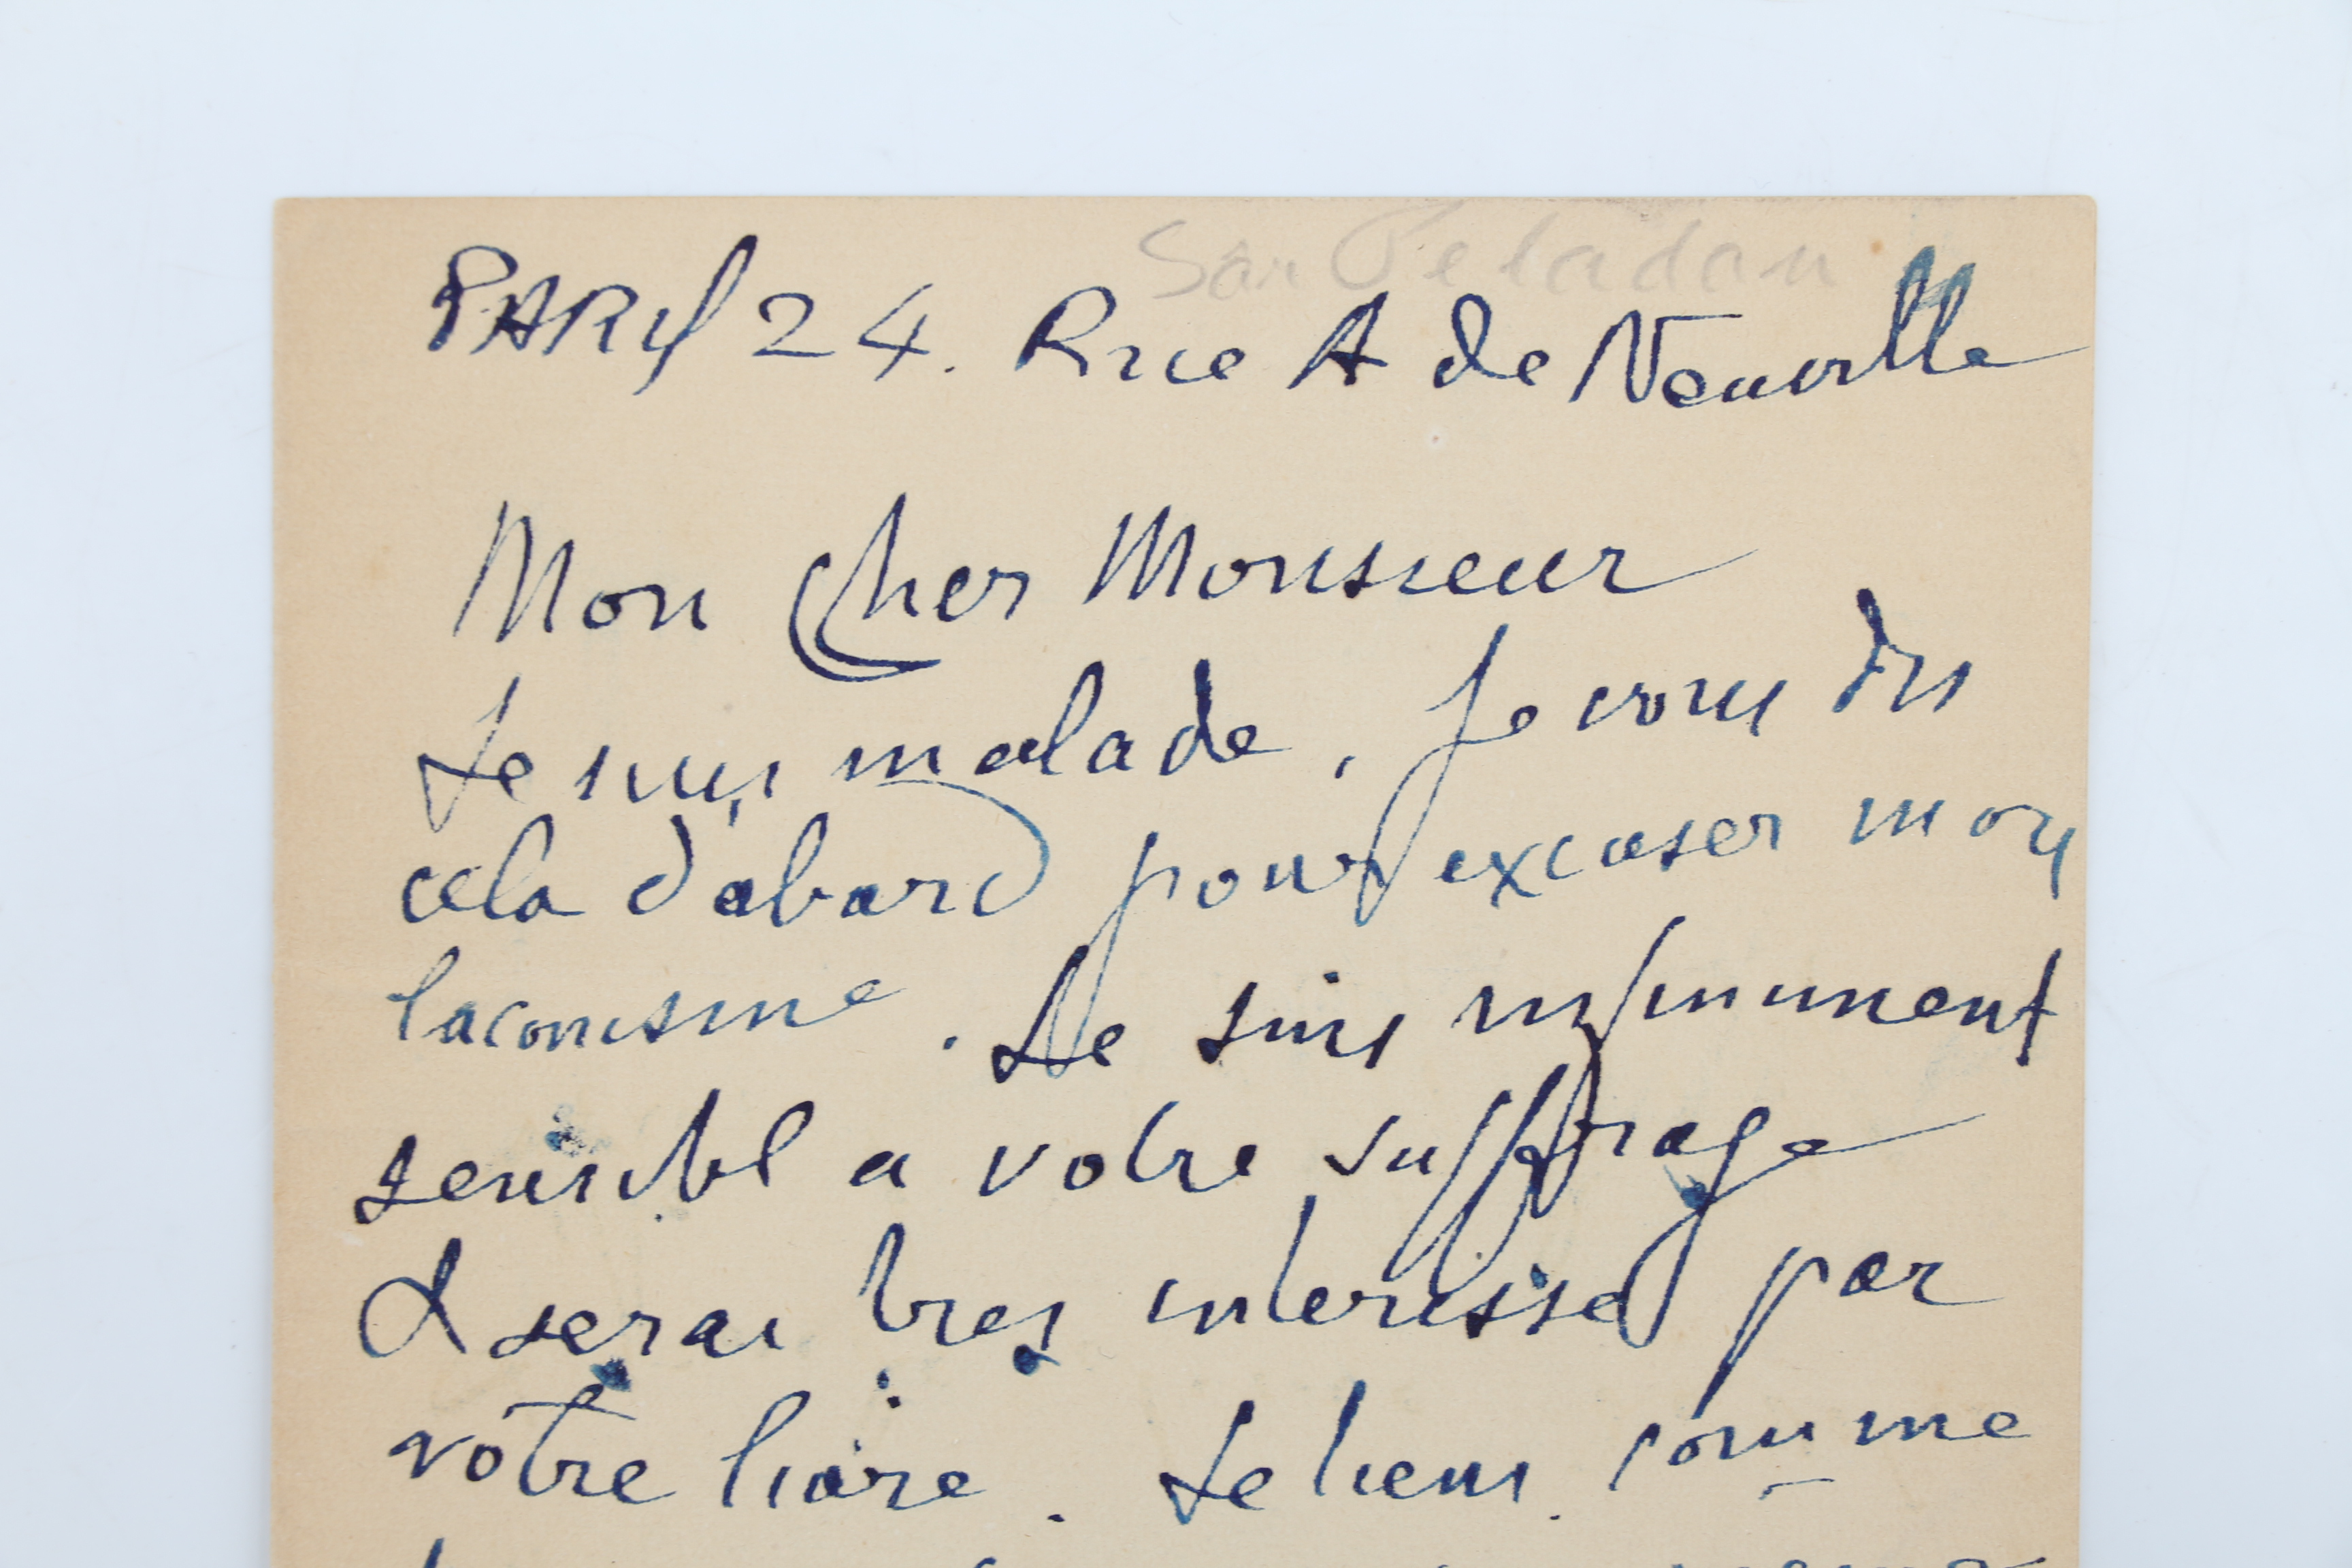 Sâr Peladan
PARIS 24. Rue A de Neuville
Mon cher Monsieur
Je suis malade, Je vous dis
cela d'abord pour excuser mon
laconisme. Je suis infiniment
sensibl a votre suffrage
& serai tres interessé par
votre livre. Je tiens comme